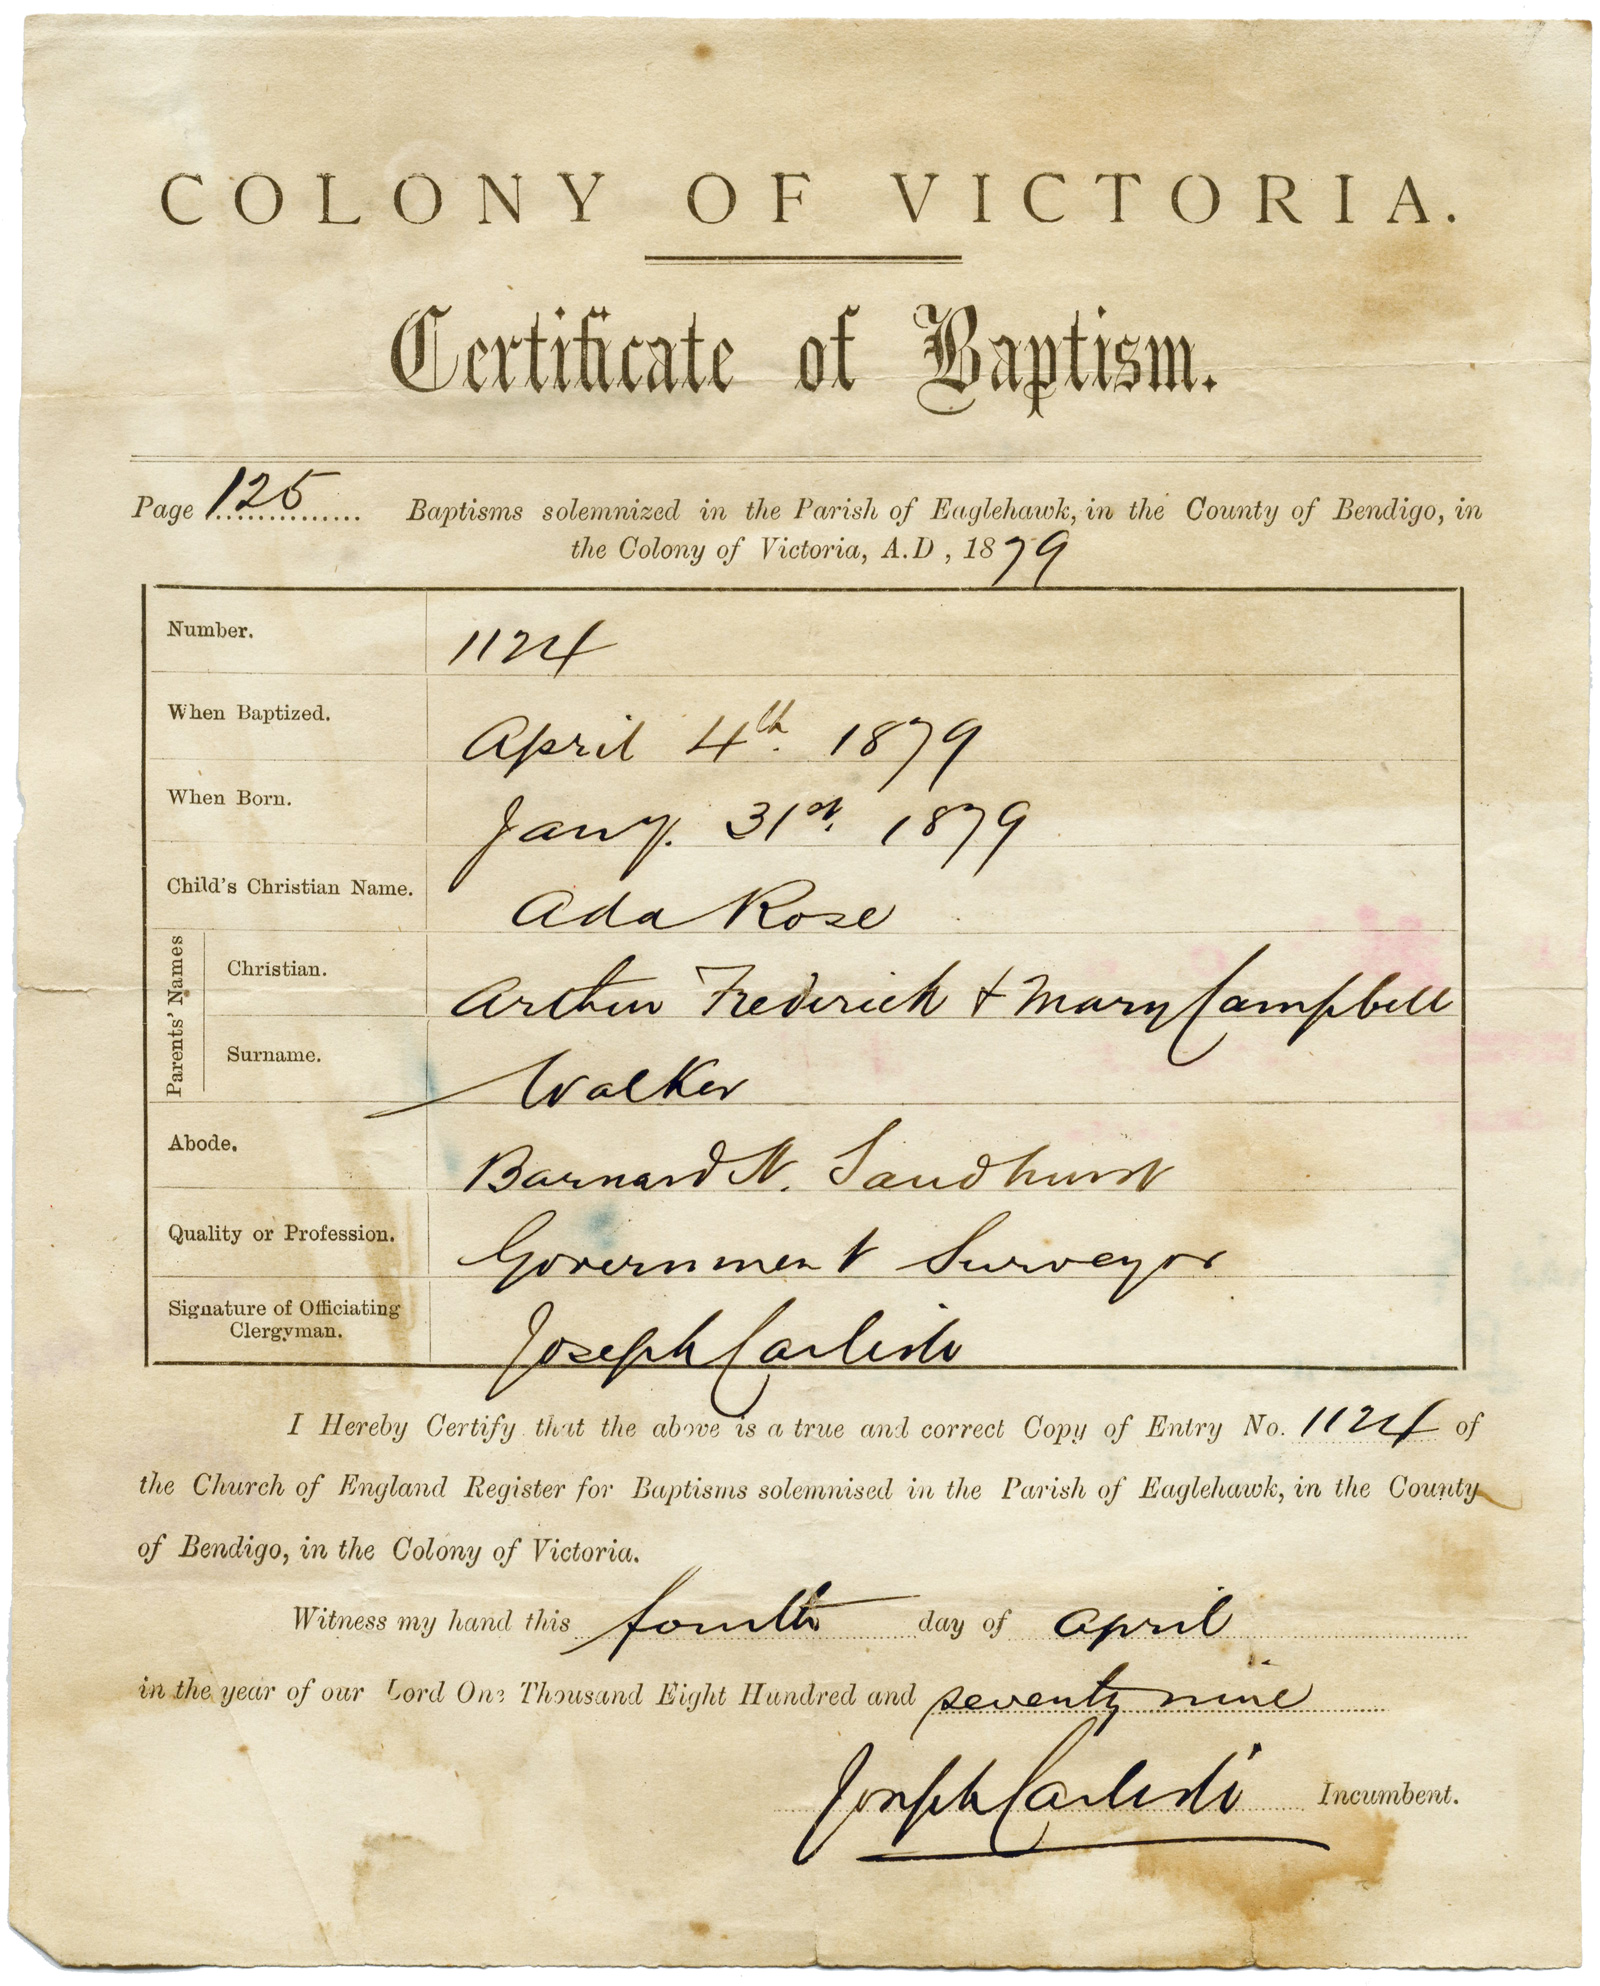 COLONY OF VICTORIA.
Certificate of Baptism.
Page 125 Baptisms solemnized in the Parish of Eaglehawk, in the County of Bendigo, in
the Colony of Victoria, A.D, 1879
Number. 1124
When Baptized. April 4th. 1879
When Born. Jany. 31st. 1879
Child's Christian Name. Ada Rose
Parents' Names
Christian. Arthur Frederick & Mary Campbell
Surname. Walker
Abode. Barnard St. Sandhurst
Quality or Profession. Government Surveyor
Signature of Officiating
Clergyman. Joseph Carlisle
I Hereby Certify that the above is a true and correct Copy of Entry No. 1124 of
the Church of England Register for Baptisms solemnised in the Parish of Eaglehawk, in the County
of Bendigo, in the Colony of Victoria.
Witness my hand this fourth day of April
in the year of our Lord One Thousand Eight Hundred and seventy nine
Joseph Carlisle Incumbent.